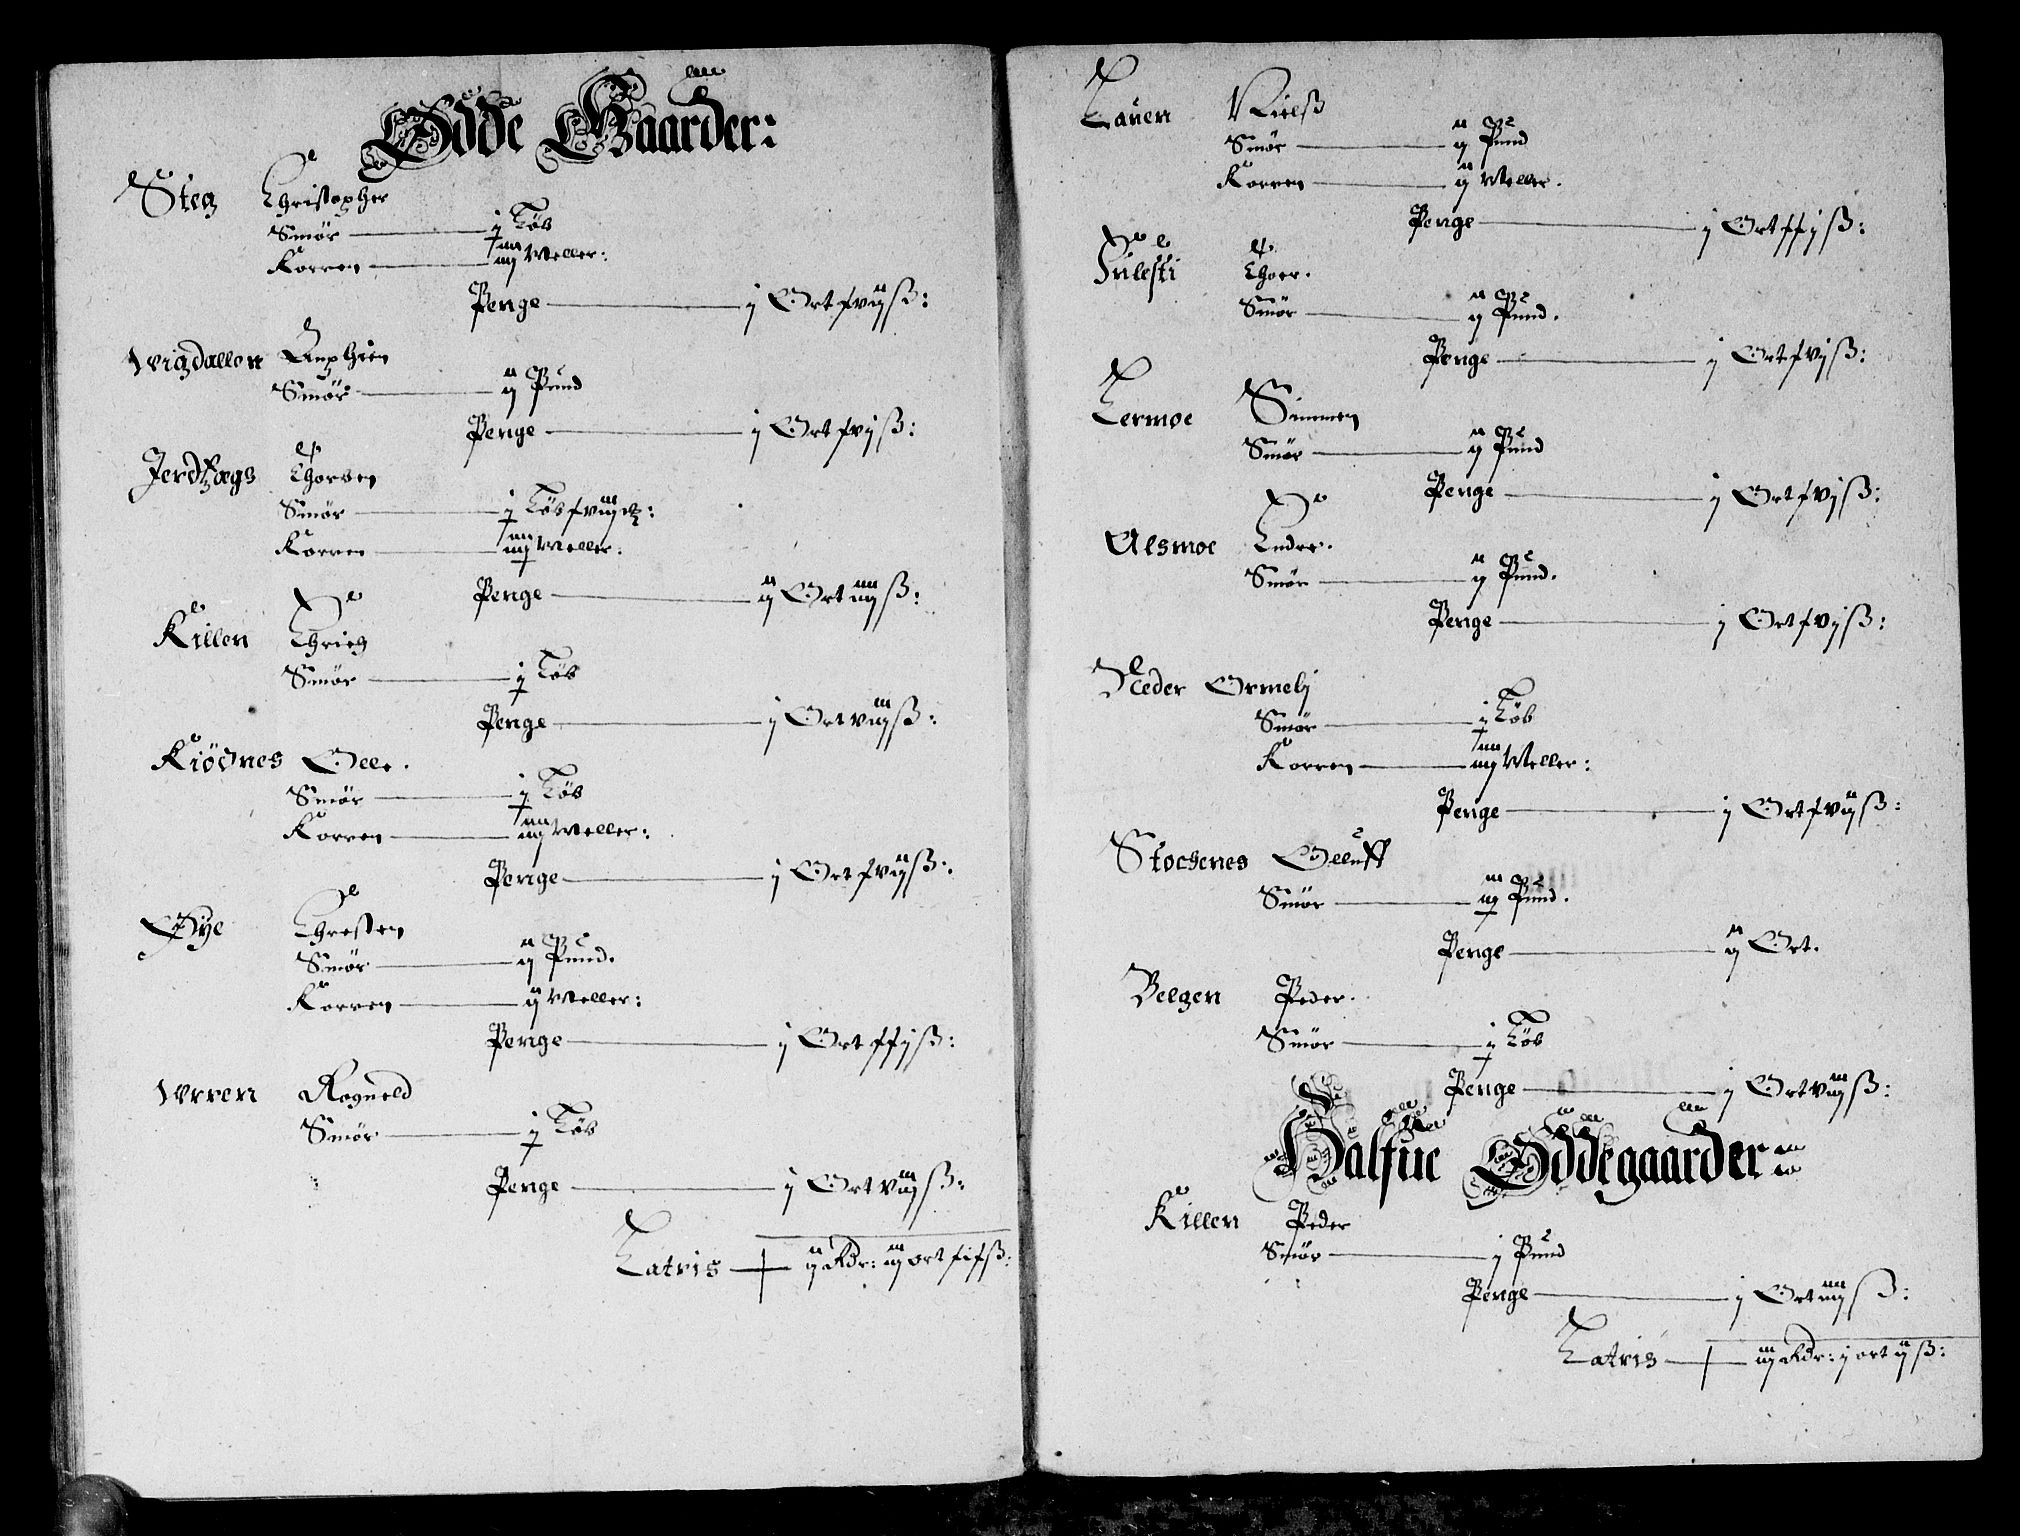 Ödde Gaarder:
Steg Christopher
Smör — j Löb
Korren — iiij Meller:
Penge — j Ort xviij ß:
Wigdallen Anphien
Smör — ij Pund
Penge — j Ort xvj ß:
Jerdtzags Thorben
Smör — j Löb
Korren — iiij Meller:
Penge — ij Ort iiij ß:
Killen Chrich
Smör — j Löb
Penge — j Ort viij ß:
Kiödnes Olle.
Smör — j Löb
Korren — iiij Meller:
Penge — j Ort xvij ß:
Øye Chresten
Smör — ij Pund.
Korren — ij Meller:
Penge — j Ort xxj ß:
Wrren Rogneld
Smör — j Löb
Penge — j Ort viij ß:
Latris — ij Rdr: iij ort
Lauen Nielß
Smör — ij Pund
Korren — ij Meller.
Penge — j Ort xxj ß:
Fulesti Thoer.
Smör — ij Pund.
Penge — j Ort xvj ß:
Lermoe Simmen
Smör — ij Pund
Penge — j Ort xvj ß:
Alsmoe Endre.
Smör — ij Pund.
Penge — j Ort xvj ß:
Neder Ormelj
Smör — j Löb
Korren — iiij Meller:
Penge — j Ort xvij ß:
Stochenes Olluff
Smör — Pund.
Penge — ij Ort.
Velgen Peder.
Smör — j Löb
Penge — j Ort viij ß:
Halfue Öddegaarder:
Killen Peder
Smör — j Pund
Penge — j Ort iiij ß:
Latris — iij Rdr: j ort ij ß: